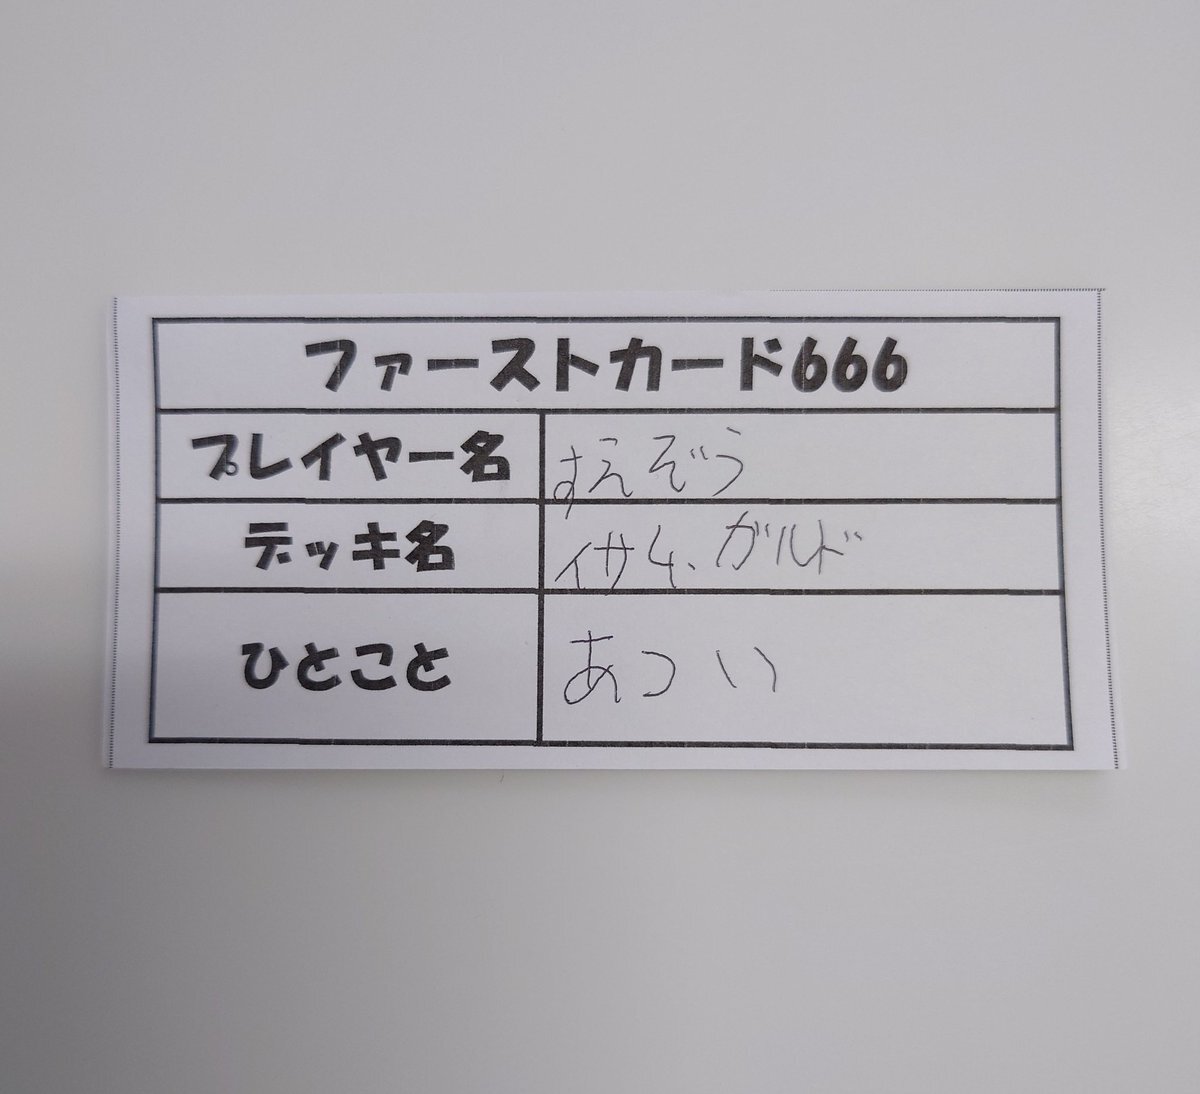 ファーストカード666
プレイヤー名 すえぞう
デッキ名 イサム、ガルド
ひとこと あつい